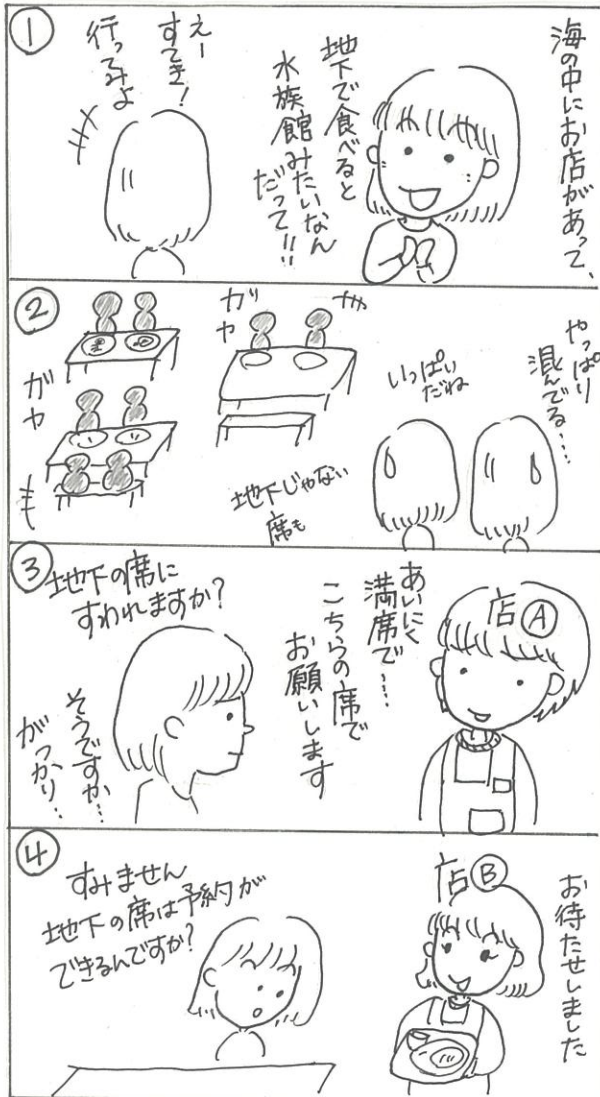 ①
海の中にお店があって、
地下で食べると
水族館みたいなん
だって!!
えー
すてき!
行ってみよ
②
やっぱり
混んでる…
いっぱい
だね
ガヤ
ガヤ
ガヤ
地下じゃない
席も
③
地下の席に
すわれますか?
店Ⓐ
あいにく
満席で…
こちらの席で
お願いします
そうですか…
がっかり…
④
お待たせしました
店Ⓑ
すみません
地下の席は予約が
できるんですか?